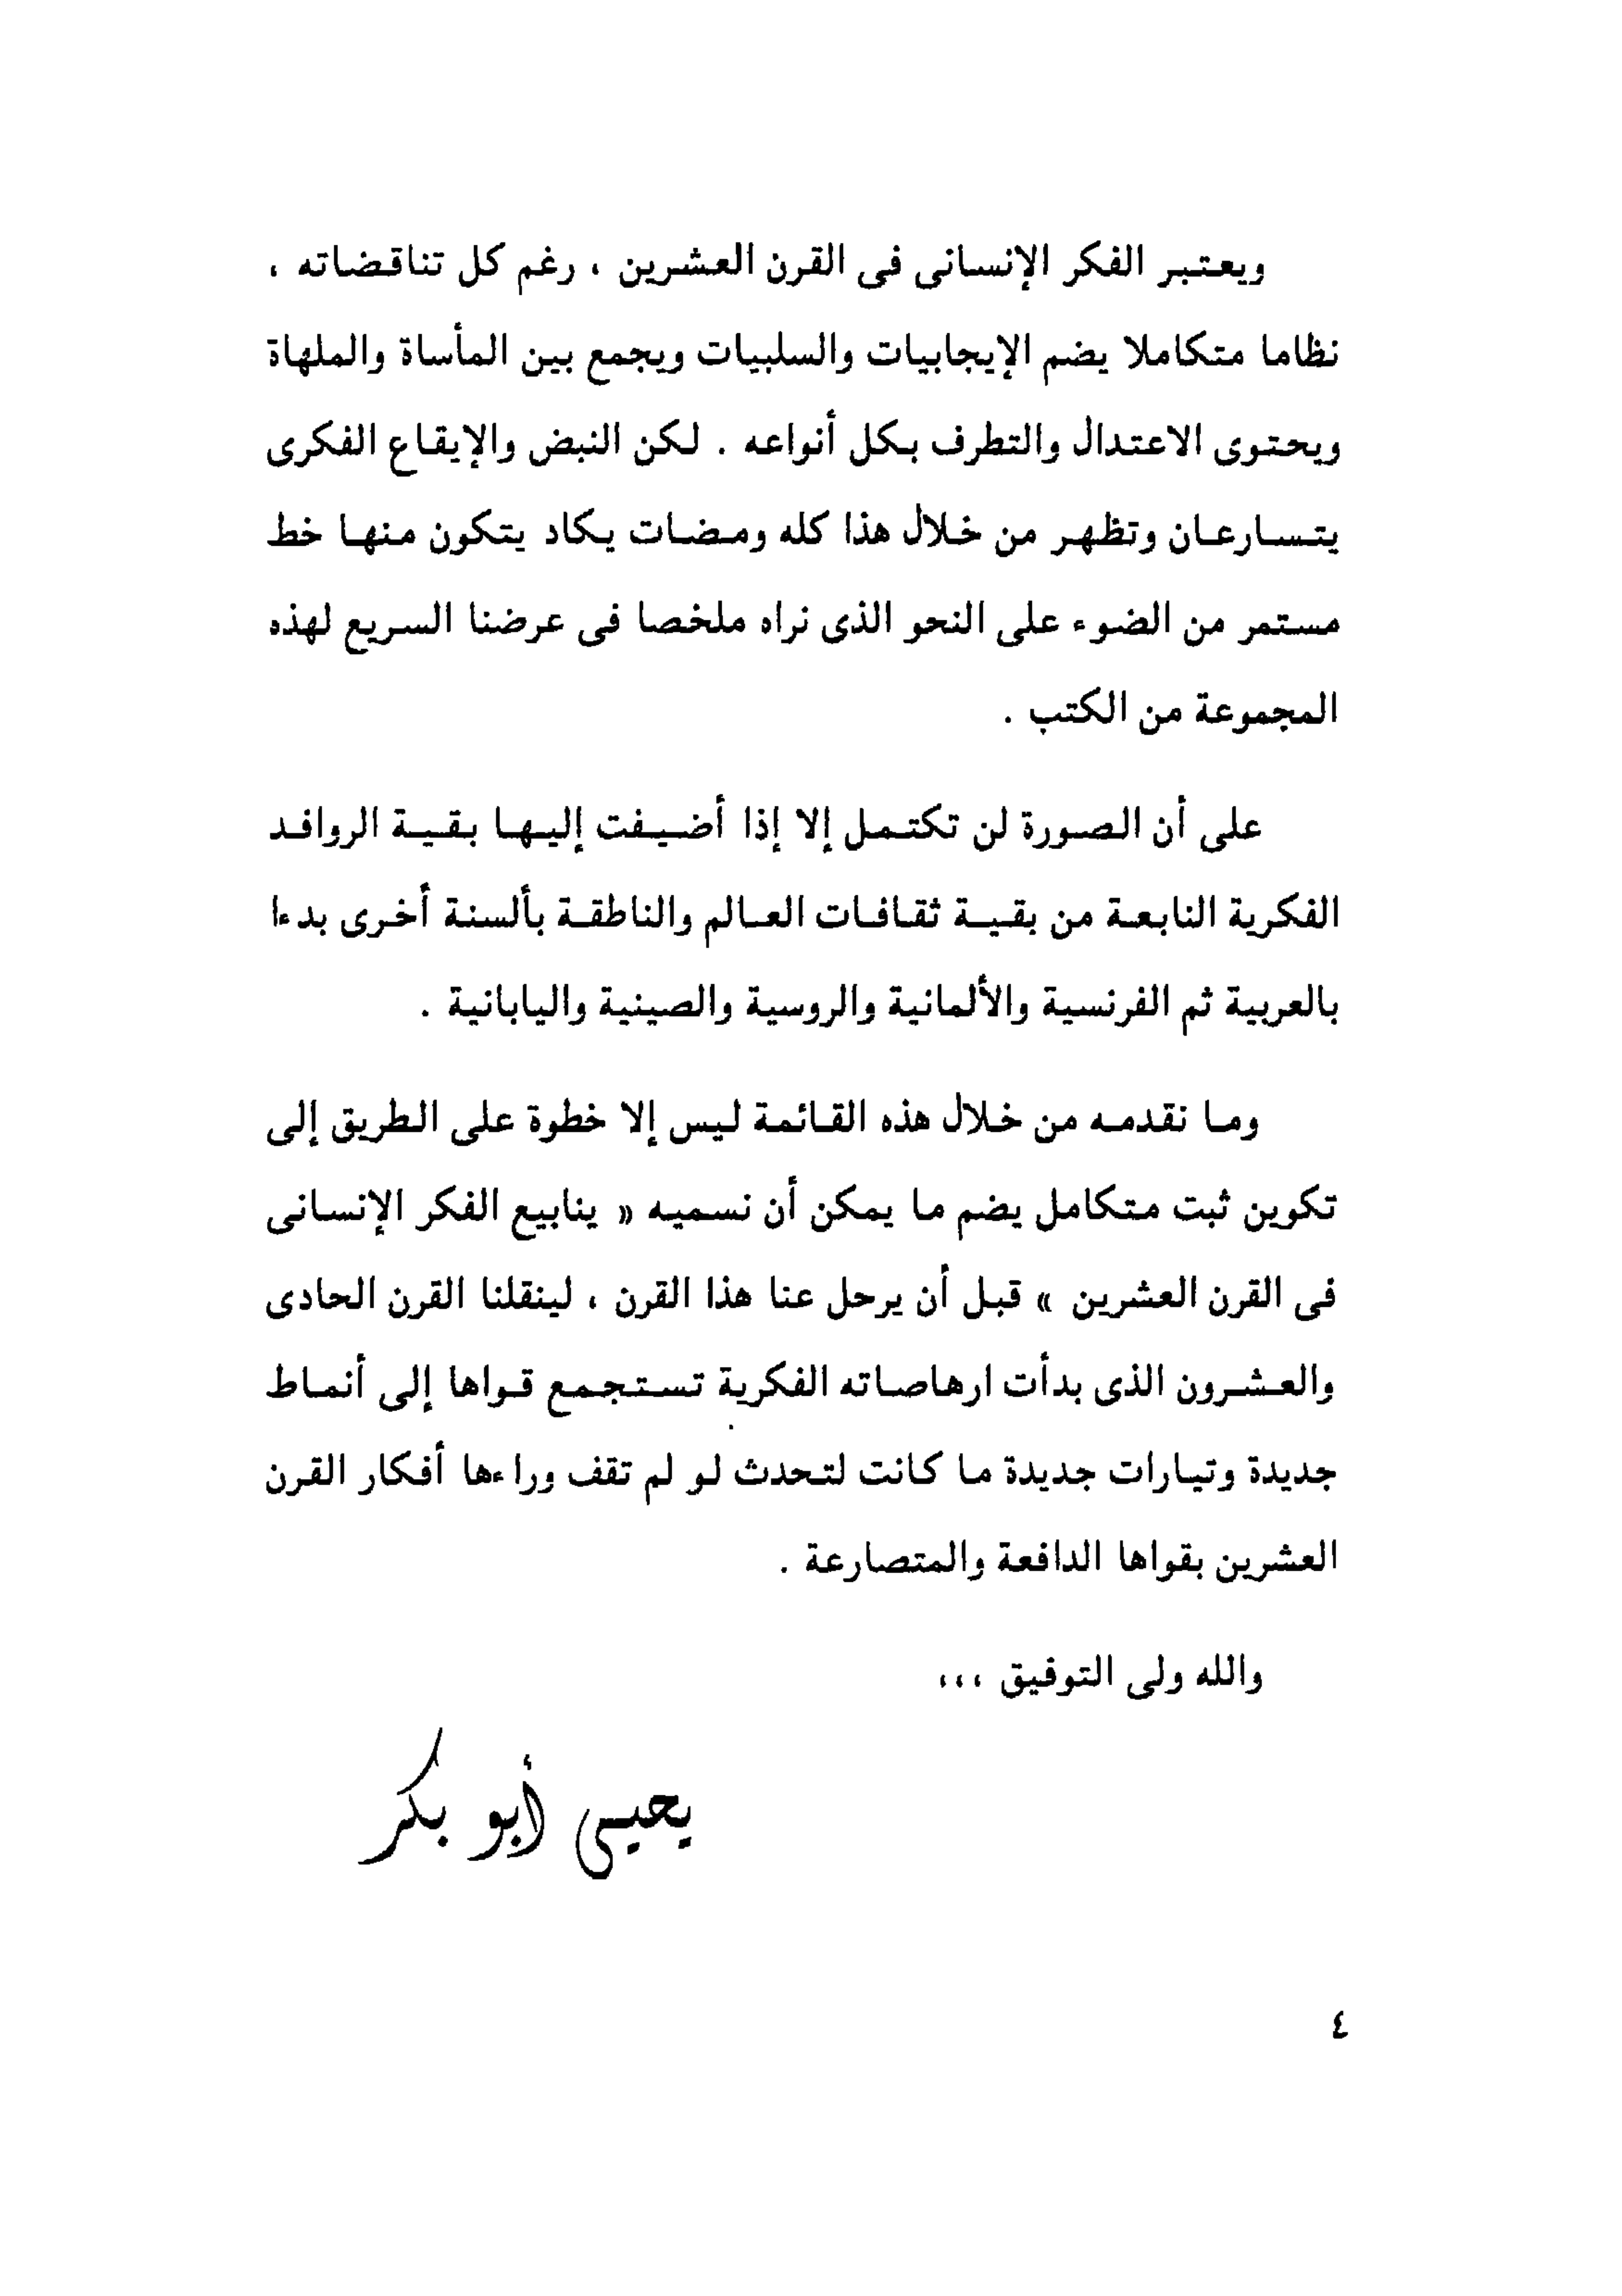 ويعتبر الفكر الإنسانى فى القرن العشرين ، رغم كل تناقضاته ،
نظاما متكاملا يضم الإيجابيات والسلبيات ويجمع بين المأساة والملهاة
ويحتوى الاعتدال والتطرف بكل أنواعه . لكن النبض والإيقاع الفكرى
يتسارعان وتظهر من خلال هذا كله ومضات يكاد يتكون منها خط
مستمر من الضوء على النحو الذى نراه ملخصا فى عرضنا السريع لهذه
المجموعة من الكتب .
على أن الصورة لن تكتمل إلا إذا أضيفت إليها بقية الروافد
الفكرية النابعة من بقية ثقافات العالم والناطقة بألسنة أخرى بدءا
بالعربية ثم الفرنسية والألمانية والروسية والصينية واليابانية .
وما نقدمه من خلال هذه القائمة ليس إلا خطوة على الطريق إلى
تكوين ثبت متكامل يضم ما يمكن أن نسميه « ينابيع الفكر الإنسانى
فى القرن العشرين » قبل أن يرحل عنا هذا القرن ، لينقلنا القرن الحادى
والعشرون الذى بدأت ارهاصاته الفكرية تستجمع قواها إلى أنماط
جديدة وتيارات جديدة ما كانت لتحدث لو لم تقف وراءها أفكار القرن
العشرين بقواها الدافعة والمتصارعة .
والله ولى التوفيق ،،،
يحيى أبو بكر
٤